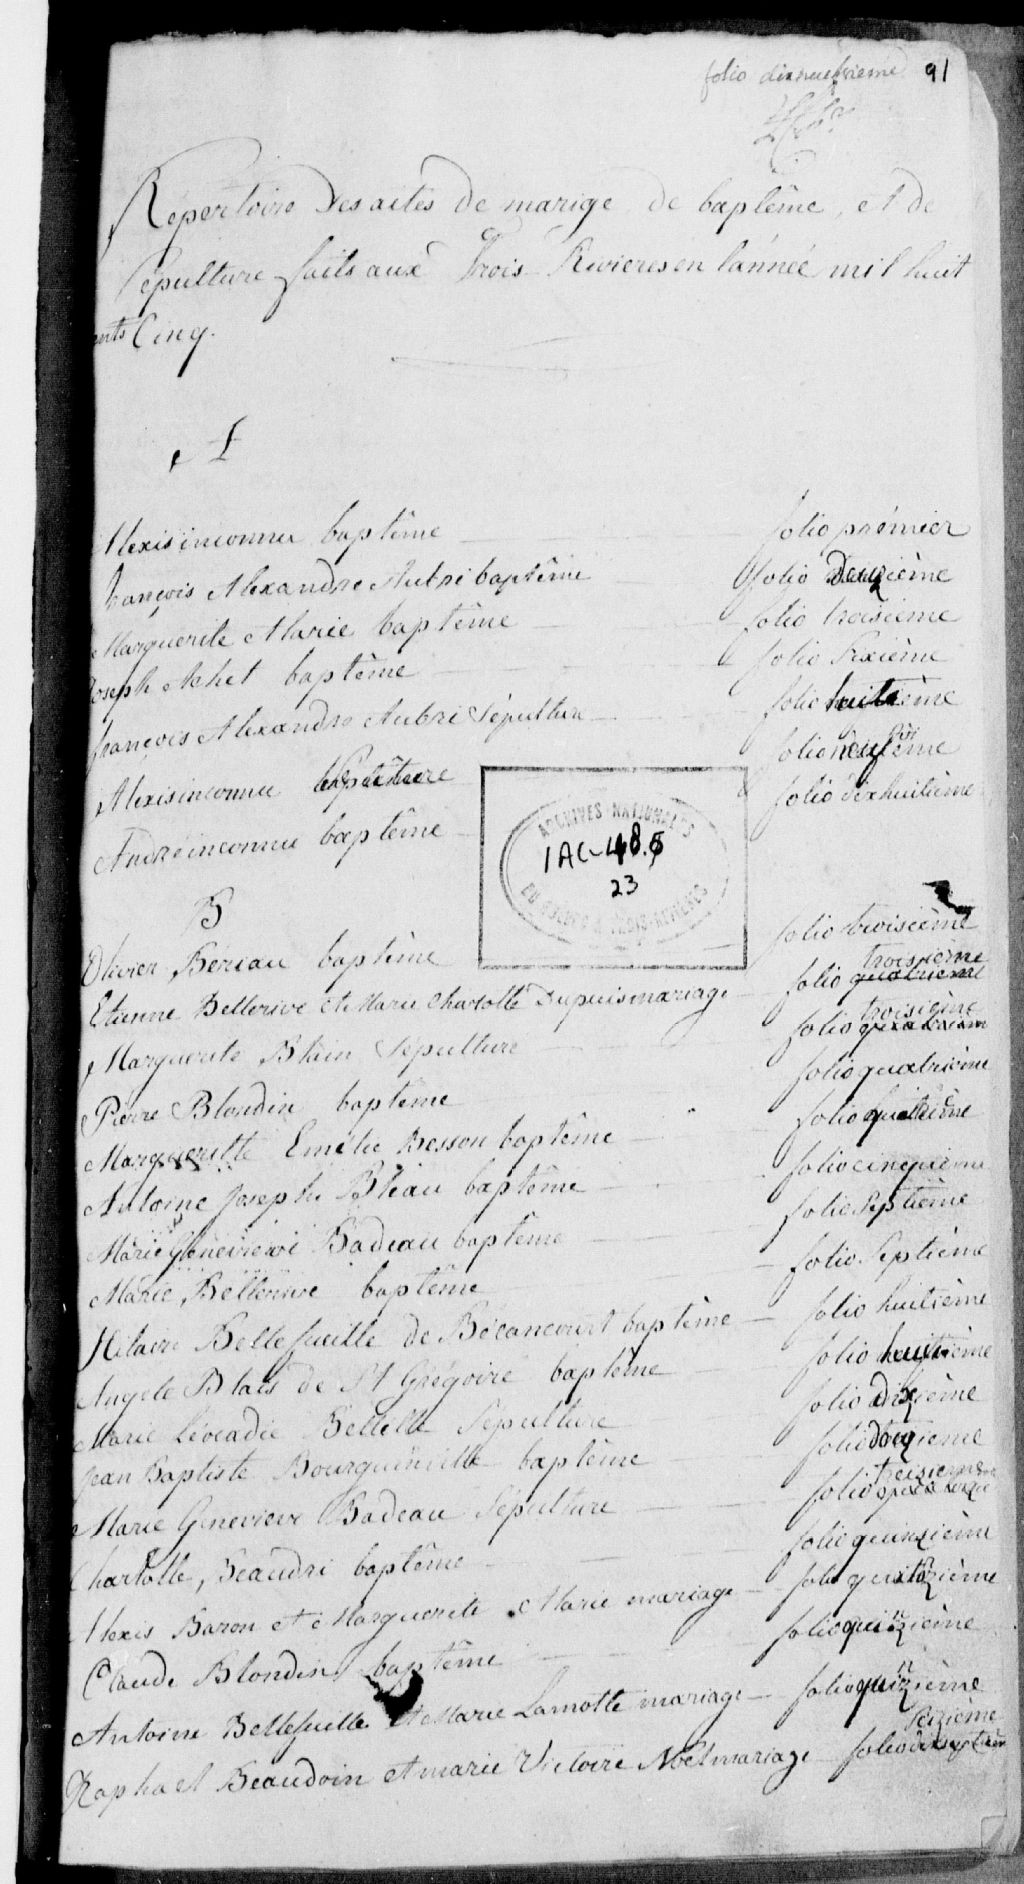 folio dixneuvieme 91
Répertoire Des actes de marige de baptême, et de
Sépulture faits aux Trois Rivieres en l'année mil huit
cents Cinq.
A
Alexis inconnu baptême folio prémier
François Alexandre Aubri baptême folio Deuxième
Marguerite Marie baptême folio troisieme
Joseph Achet baptême folio Sixième
françois Alexandre Aubri Sépulture folio huitième
Alexis inconnu Sépulture folio neufième
André inconnu baptême folio dixhuitième
ARCHIVES NATIONALES
1AC-48.5
23
B
Olivier Bériau baptême folio troisième
Etienne Bellerive et Marie Charlotte Dupuis mariage folio quatrieme troisieme
Marguerite Blain Sépulture folio quatrieme troisième
Pierre Blondin baptême folio quatrième
Margueritte Emélie Besson baptême folio huitième
Antoine Joseph Bléau baptême folio cinquième
Marie Génevieve Badeau baptême folio Septième
Marie Bellerive baptême folio Septième
Hilaire Bellefueille de Bécancourt baptême folio huitième
Angele Blais de St Grégoire baptême folio huitième
Marie Leocadie Bellille Sépulture folio dixième
Jean Baptiste Bourguinville baptême folio douzieme
Marie Genevieve Badeau Sépulture folio treizieme
Charlotte, Beaudri baptême folio quinzième
Alexis Baron et Marguerite Marie mariage folio quinzième
Claude Blondin baptême folio quinzième
Antoine Bellefuelle et Marie Lamotte mariage folio quinzième
Raphael Beaudoin et marie Victoire Noel mariage folio dixseptieme Seizième